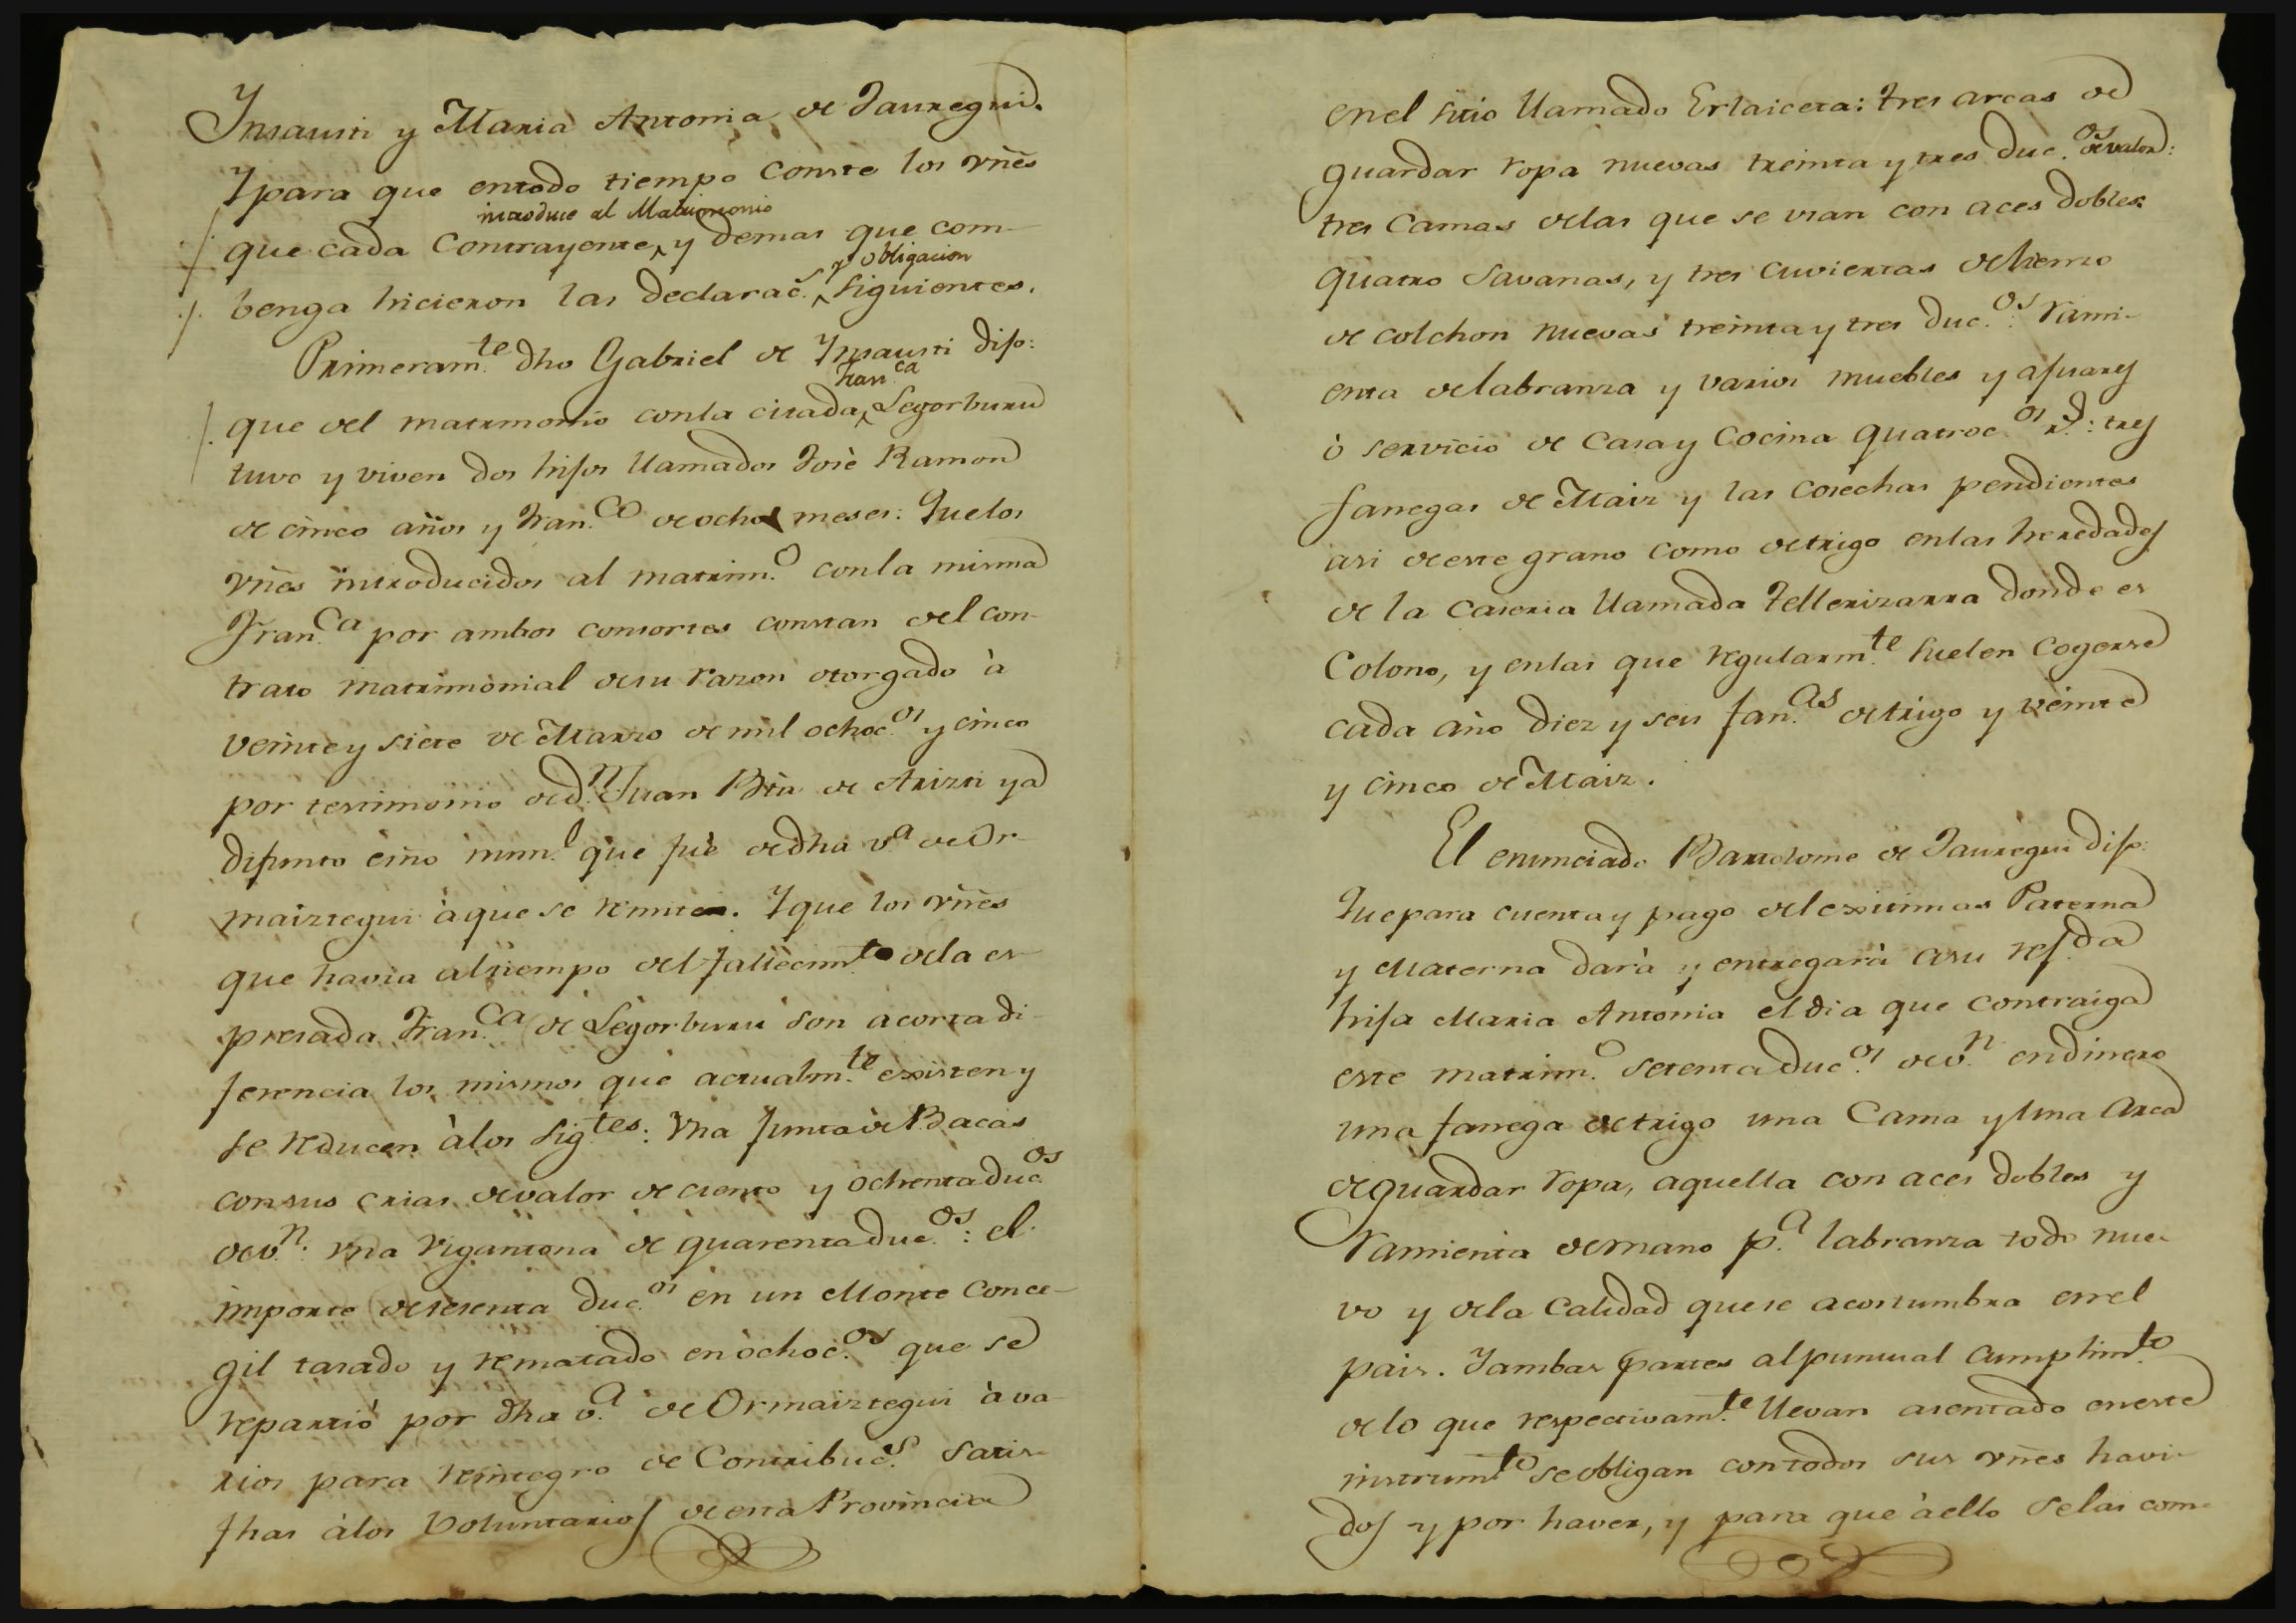 Insausti y Maria Antonia de Jauregui.
Y para que en todo tiempo conste los vñes
introduce al Matrimonio
que cada Contrayente, y demas que com-
y obligacion
benga hicieron las declarac.s siguientes.
Primeram.te dho Gabriel de Insausti dijo:
Fran.ca
que del matrimonio con la citada Legorburu
tuvo y viven dos hijos llamados José Ramon
de cinco años y Fran.co de ocho meses: Que los
vñes introducidos al matrim.o con la misma
Fran.ca por ambos consortes constan del con-
trato matrimonial de su razon otorgado à
veinte y siete de Marzo de mil ochoc.os y cinco
por testimonio de d.n Juan Bta de Arizti ya
difunto esño num.l que fué de dha v.a de Or-
maiztegui à que se remite. Y que los vñes
que havia al tiempo del fallecim.to de la es-
presada Fran.ca de Legorburu son a corta di-
ferencia los mismos que actualm.te existen y
se reducen à los sig.tes: Vna Junta de Bacas
con sus crias de valor de ciento y ochenta duc.os
de v.n: vna Vigantona de quarenta duc.os: el
importe de sesenta duc.os en un Monte conce-
gil tasado y rematado en ochoc.os que se
repartió por dha v.a de Ormaiztegui à va-
rios para reintegro de Contribuc.s satis-
fhas à los Voluntarios de esta Provincia
en el sitio llamado Erlaiceta: tres arcas de
guardar ropa nuevas treinta y tres duc.os de valor:
tres Camas de las que se vsan con aces dobles
quatro Savanas, y tres cuviertas de lienzo
de colchon nuevas treinta y tres duc.os: rami-
enta de labranza y varios muebles y ajuares
ò servicio de Casa y Cocina quatroc.os r.s: tres
fanegas de Maiz y las cosechas pendientes
asi de este grano como de trigo en las heredades
de la caseria llamada Tellerizarra donde es
Colono, y en las que regularm.te suelen cogerse
cada año diez y seis fan.as de trigo y veinte
y cinco de Maiz.
El enunciado Bartolome de Jauregui dijo:
Que para cuenta y pago de lexitimas Paterna
y Materna darà y entregarà a su ref.da
hija Maria Antonia el dia que contraiga
este matrim.o setenta duc.os de v.n en dinero
una fanega de trigo una Cama y una Arca
de guardar ropa, aquella con aces dobles y
ramienta de mano p.a labranza todo nue-
vo y de la calidad que se acostumbra en el
pais. Y ambas partes al puntual cumplim.to
de lo que respectivam.te llevan asentado en este
instrum.to se obligan con todos sus vñes havi-
dos y por haver, y para que à ello se las com-